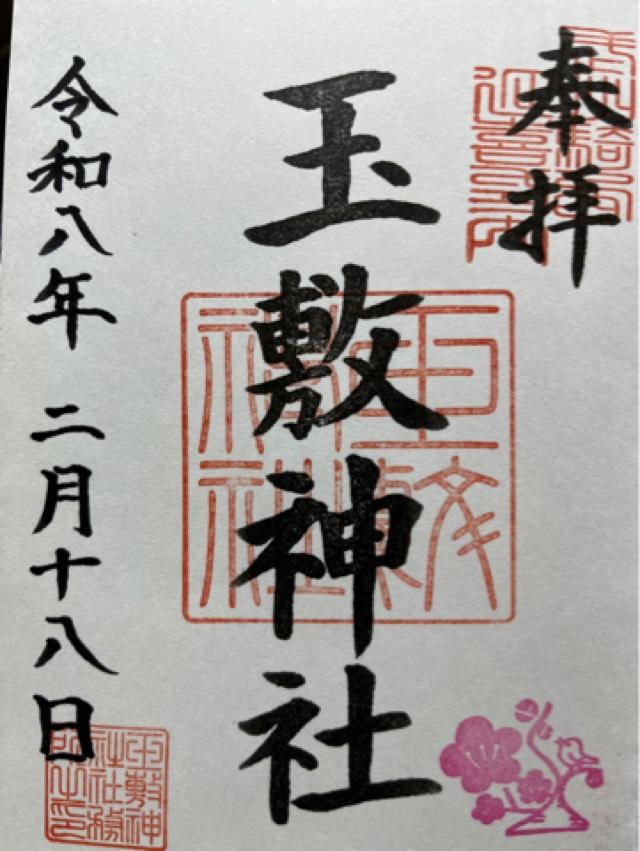 奉拝
玉敷神社
令和八年 二月十八日
玉敷神社
玉敷神社社務所之印